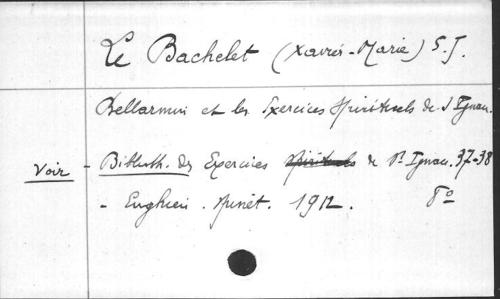 Le Bachelet (Xavier-Marie) S.J.
Bellarmin et les Exercices Spirituels de S Ignace.
Voir - Biblioth. des Exercices Spirituels de St Ignace. 37-38
- Enghien. 1912. 8º